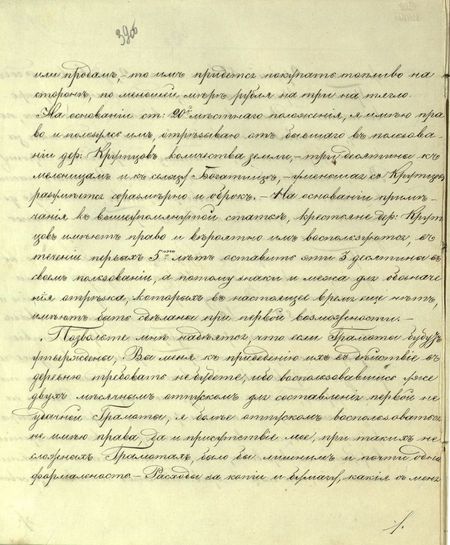 39об
или продамъ, – то имъ придется покупать топливо на
сторонѣ, по меньшей мѣрѣ рубля на три на тягло.
На основаніи ст: 20й мѣстнаго положенія, я имѣю пра
во и пользуюсь имъ отрѣзываю отъ бывшаго въ пользова
ніи дер: Крутцовъ количества земли, – три десятины къ
мельницамъ и къ сельцу
разумѣется соразмѣрно и оброкъ. – На основаніи примѣ
чанія къ вышеупомянутой статьѣ, крестьяне дер: Крут
цовъ имѣютъ право и вѣроятно имъ воспользуются, въ
теченіи первыхъ 3хъ лѣтъ оставить эти 3 десятины въ
своемъ пользованіи, а потому знаки и межа для обозна
ченія отрѣзка, которыхъ въ настоящее время еще нѣтъ,
имѣютъ быть сдѣланы при первой возможности. –
Позвольте мнѣ надѣяться, что если Грамоты будутъ
утверждены, Вы меня къ приведенію ихъ въ дѣйствіе въ
деревню требовать не будете, ибо воспользовавшись уже
двухъ мѣсячнымъ отпускомъ для составленія первой не
удачной Грамоты, я болѣе отпускомъ воспользоваться
не имѣю права, да и присутствіе мое, при такихъ не
сложныхъ Грамотахъ, было бы лишнимъ и почти одною
формальностью – Расходы за копіи и бумагу, какія съ меня